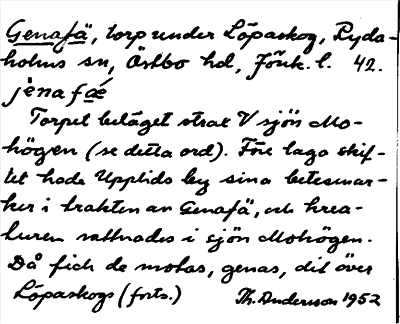 Genafä, torp under Löpaskog, Ryda-
holms sn, Östbo hd, Jönk. l. 42.
jènafǽ
Torpet beläget strax V sjön Mo-
högen (se detta ord). Före laga skif-
tet hade Upplids by sina betesmar-
ker i trakten av Genafä, och krea-
turen vattnades i sjön Mohögen.
Då fick de motas, genas, dit över
Löpaskogs (forts.) Th. Andersson 1952